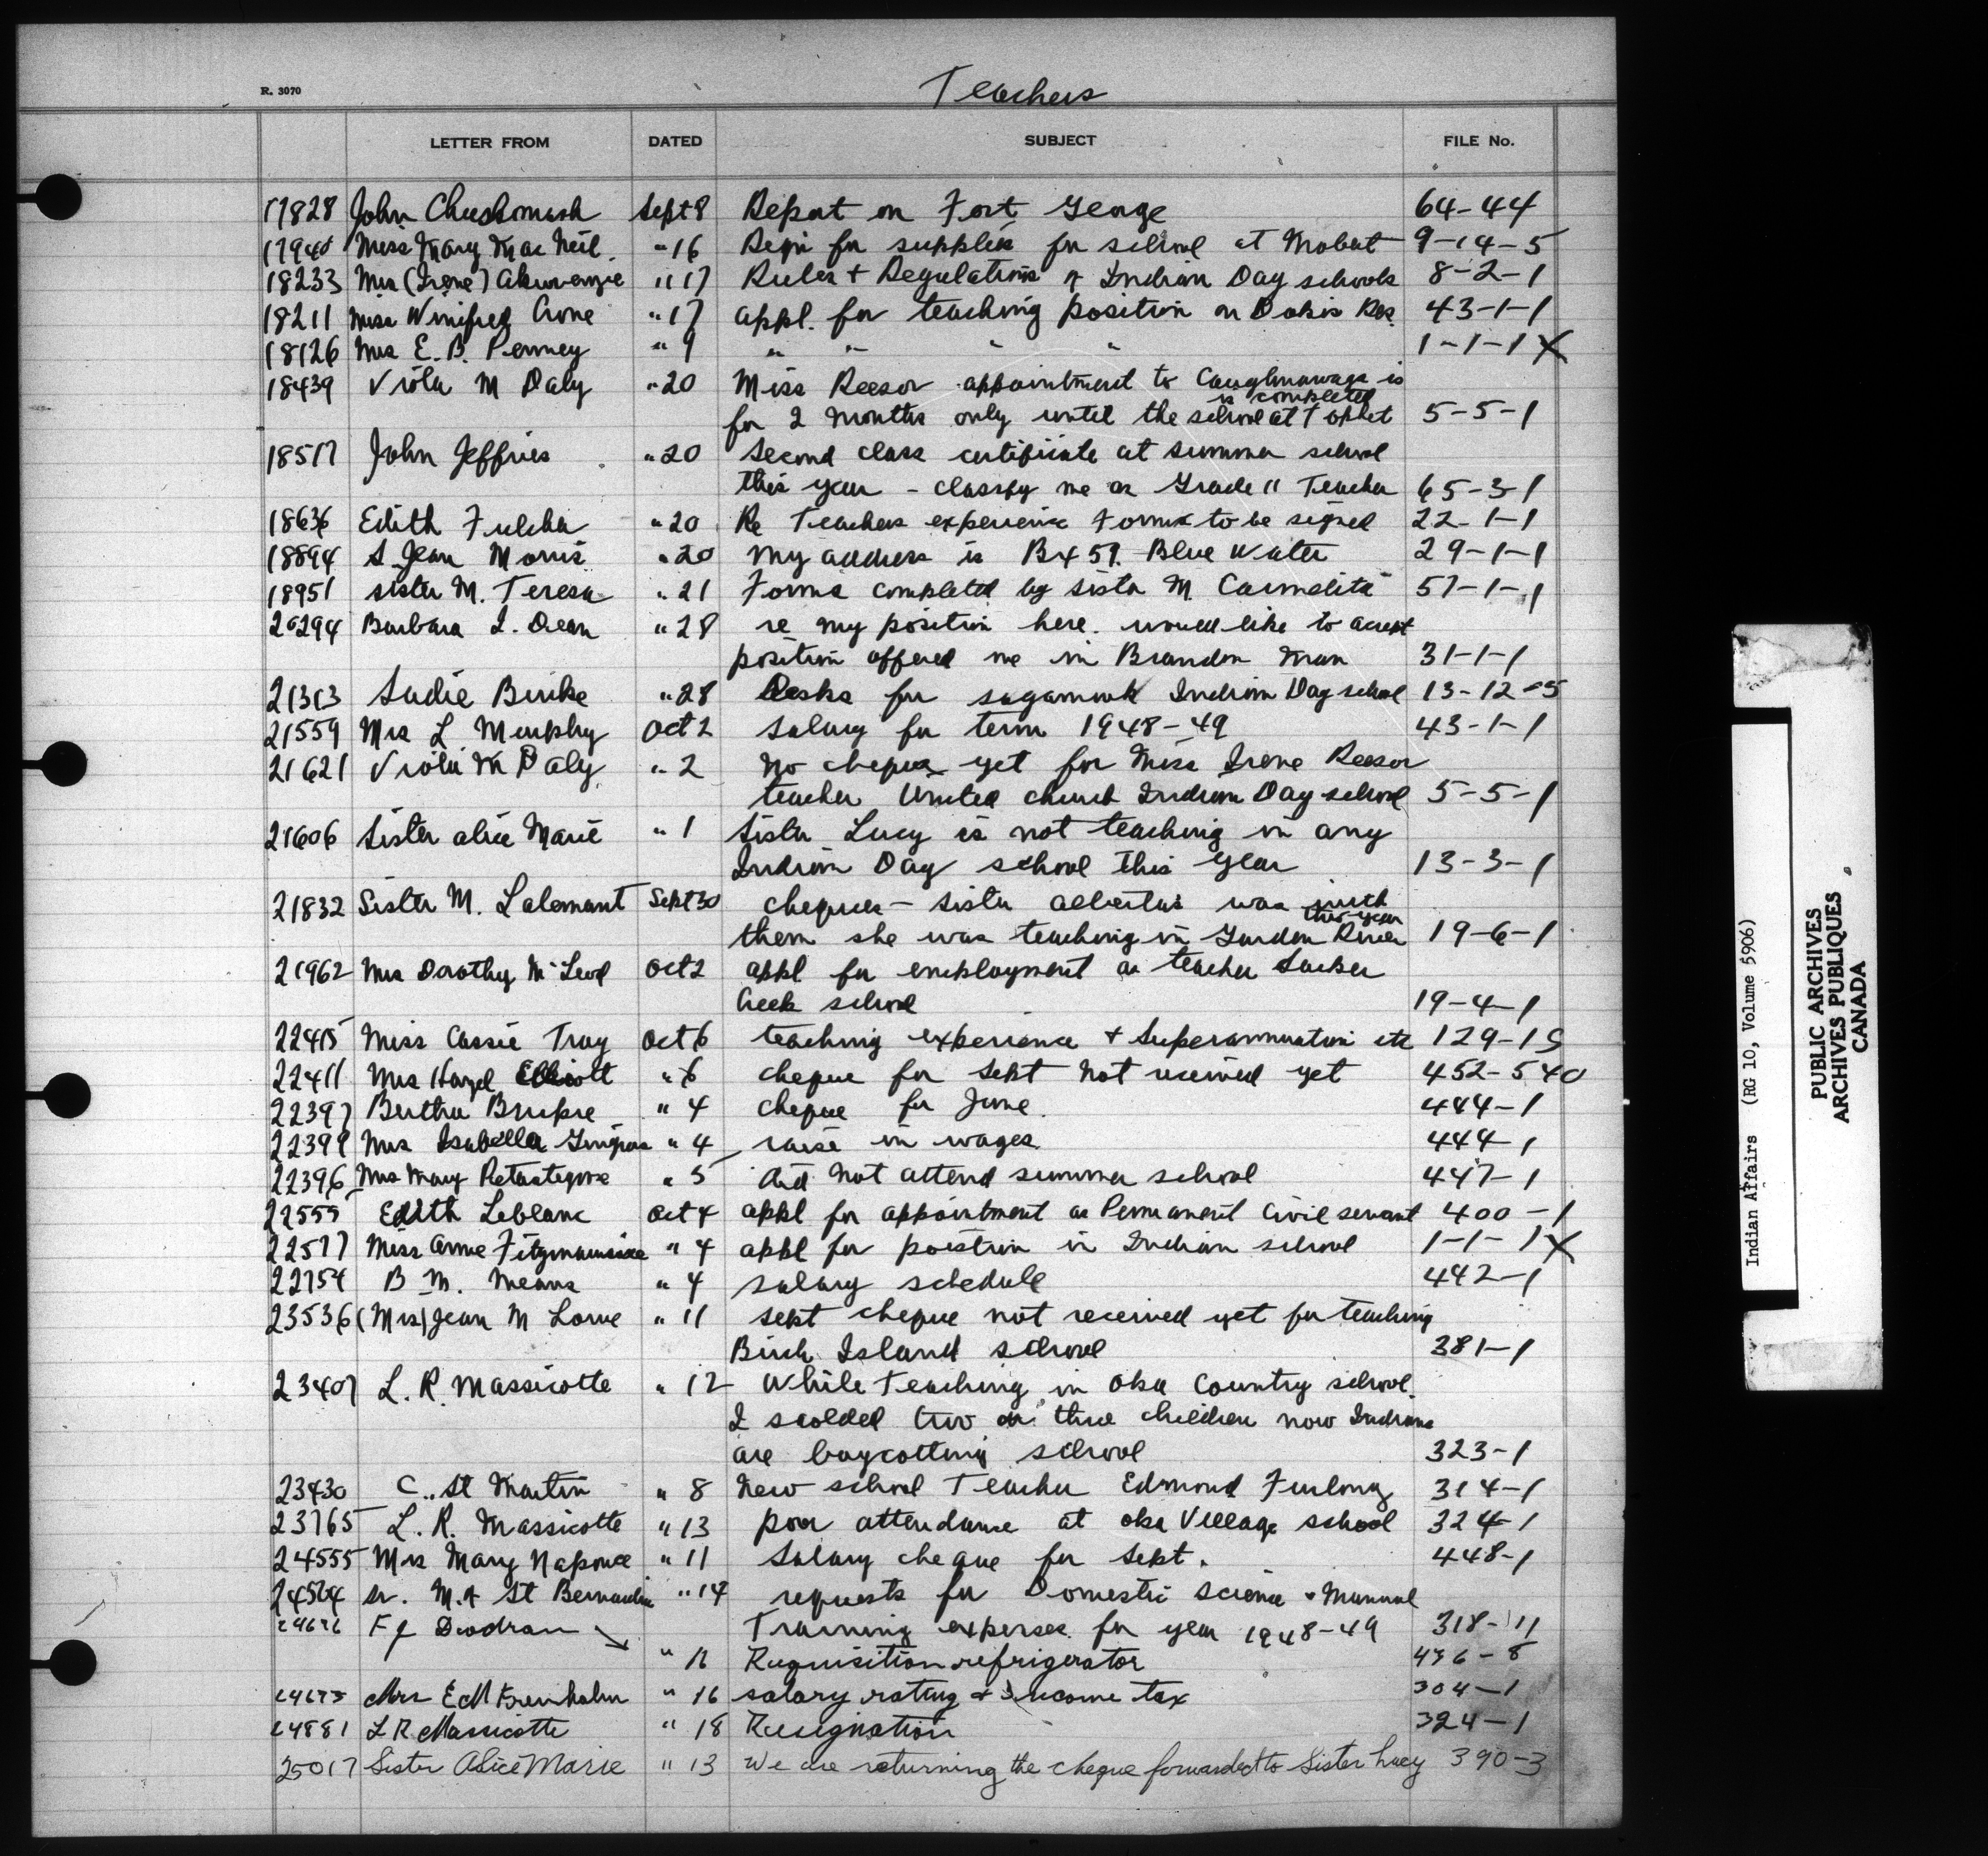 R. 3070
Teachers
LETTER FROM DATED SUBJECT FILE No.
17828 John Sept 8 Report on Fort George 64-44
17940 Miss Mary Mac Neil. " 16 Reqn for supplies for school at 9-14-5
18233 Mrs (Irene) Akiwenzie " 17 Rules + Regulations of Indian Day schools 8-2-1
18211 Miss Winifred Crone " 17 appl. for teaching position on Dokis Res. 43-1-1
18126 Mrs E. B. Penney " 9 " " " " 1-1-1 X
18439 Viola M Daly " 20 Miss Reesor appointment to Caughnawaga is
is completed
for 2 months only until the school at 5-5-1
18517 John Jeffries " 20 Second class certificate at summer school
this year - classify me as Grade 11 Teacher 65-3-1
18636 Edith Fulcher " 20 Re Teachers experience Forms to be signed 22-1-1
18894 S. Jean Morris " 20 My address is Bx 59. Blue Water 29-1-1
18951 Sister M. Teresa " 21 Forms completed by Sister M Carmelita 57-1-1
20294 Barbara I. Dean " 28 re my position here. would like to accept
position offered me in Brandon Man 31-1-1
21313 Sadie Burke " 28 Desks for Sagamook Indian Day school 13-12-5
21559 Mrs L Murphy Oct 2 Salary for term 1948-49 43-1-1
21621 Viola M Daly " 2 No cheque yet for Miss Irene Reesor
teacher United church Indian Day school 5-5-1
21606 Sister Alice Marie " 1 Sister Lucy is not teaching in any
Indian Day school this year 13-3-1
21832 Sister M. Lalemant Sept 30 cheques - Sister Albertus was with
this year
them she was teaching in Garden River 19-6-1
21962 Mrs Dorothy McLeod Oct 2 appl for employment as teacher Sucker
Creek school 19-4-1
22415 Miss Cassie Oct 6 teaching experience + Superannuation etc 129-15
22411 Mrs Hazel Elliott " 6 cheque for Sept not received yet 452-540
22397 Bertha " 4 cheque for June. 444-1
22399 Mrs Isabella Gingras " 4 raise in wages 444-1
22396 Mrs Mary " 5 did not attend summer school 447-1
22555 Edith Leblanc Oct 4 appl for appointment as Permanent Civil servant 400-1
22577 Miss Anne Fitzmaurice " 4 appl for position in Indian school 1-1-1 X
22754 B M. Means " 4 salary schedule 442-1
23536 (Mrs) Jean M Lowe " 11 Sept cheque not received yet for teaching
Birch Island school 381-1
23407 L. R. Massicotte " 12 While Teaching in Oka Country school.
I scolded two or three children now Indians
are boycotting school 323-1
23430 C.. St Martin " 8 New school Teacher Edmond Furlong 314-1
23765 L. R. Massicotte " 13 poor attendance at Oka Village school 324-1
24555 Mrs Mary Naponse " 11 Salary cheque for Sept. 448-1
24564 Sr. M. St Bernardin " 14 requests for Domestic Science + Manual
F J Training expenses for year 1948-49 318-11
" 16 Requisition refrigerator 436-8
24673 Mrs E M Trenholm " 16 salary rating & Income tax 304-1
24881 L R Massicotte " 18 Resignation 324-1
25017 Sister Alice Marie " 13 We are returning the cheque forwarded to Sister Lucy 390-3
Indian Affairs (RG 10, Volume 5906)
PUBLIC ARCHIVES
ARCHIVES PUBLIQUES
CANADA